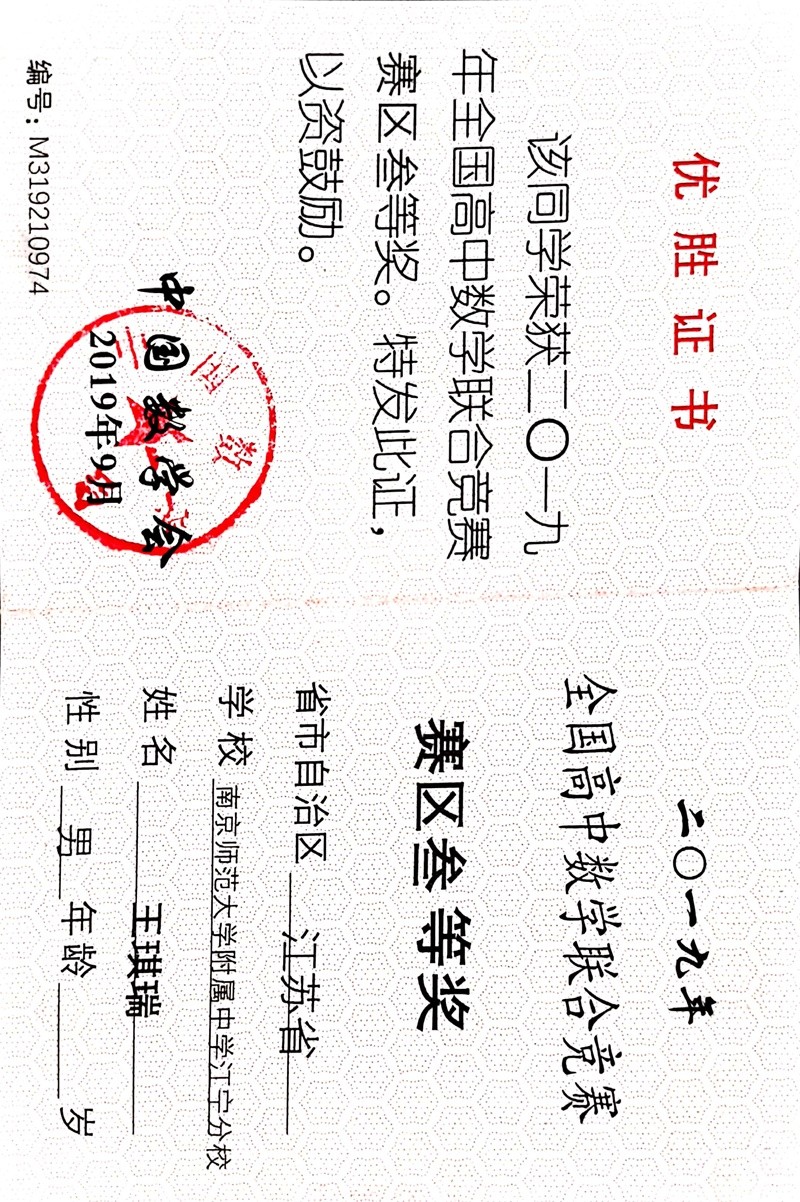 优胜证书
该同学荣获二〇一九
年全国高中数学联合竞赛
赛区叁等奖。特发此证，
以资鼓励。
中国数学会
2019年9月
编号：M319210974
二〇一九年
全国高中数学联合竞赛
赛区叁等奖
省市自治区 江苏省
学校 南京师范大学附属中学江宁分校
姓名 王琪瑞
性别 男 年龄 岁